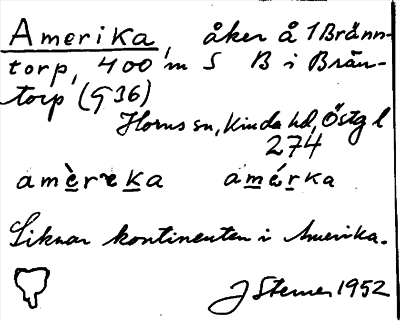 Amerika, åker å 1 Bränn-
torp, 400 m S B i Brän-
torp (G 36)
Horns sn, Kinda hd, Östg l
274
amèreka amérka
Liknar kontinenten i Amerika.
J Stemer 1952